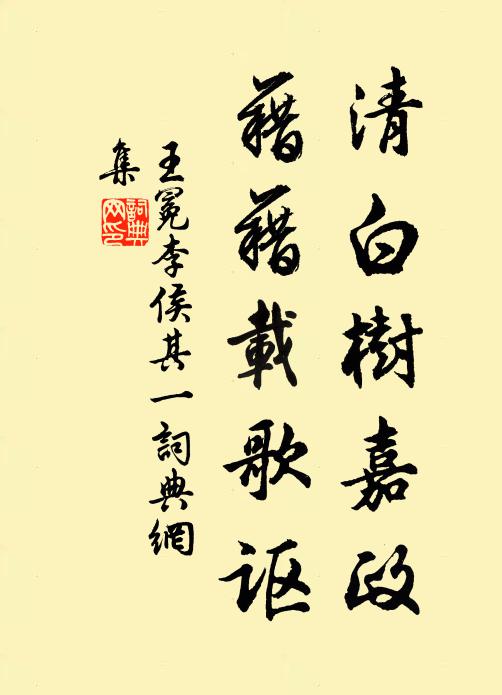 清白樹嘉政
藉藉載歌讴
王冕李侯其一詞典網
集
詞典
网印